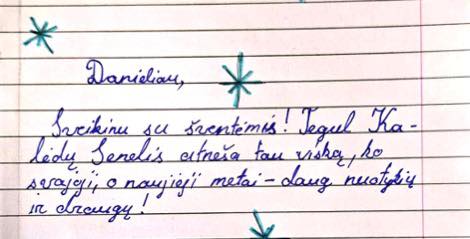 Danieliau,
Sveikinu su šventėmis! Tegul Ka-
lėdų Senelis atneša tau viską, ko
svajoji, o naujieji metai – daug nuotykių
ir draugų!